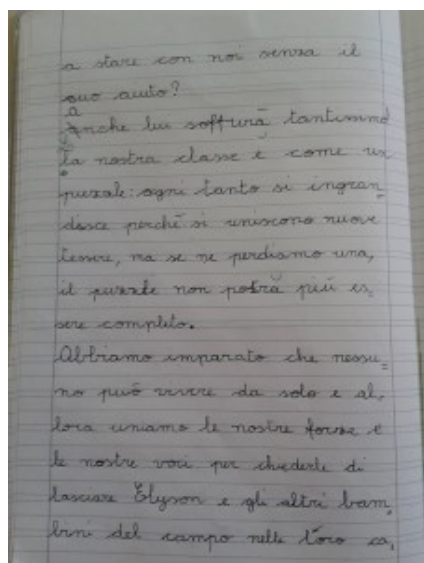 a stare con noi senza il
suo aiuto?
Anche lui soffrirà tantissimo
La nostra classe è come un
puzzle: ogni tanto si ingran_
disce perchè si uniscono nuove
tessere, ma se ne perdiamo una,
il puzzle non potrà più es_
sere completo.
Abbiamo imparato che nessu=
no può vivere da solo e al_
lora uniamo le nostre forze e
le nostre voci per chiederle di
lasciare Elyson e gli altri bam_
bini del campo nelle loro ca_